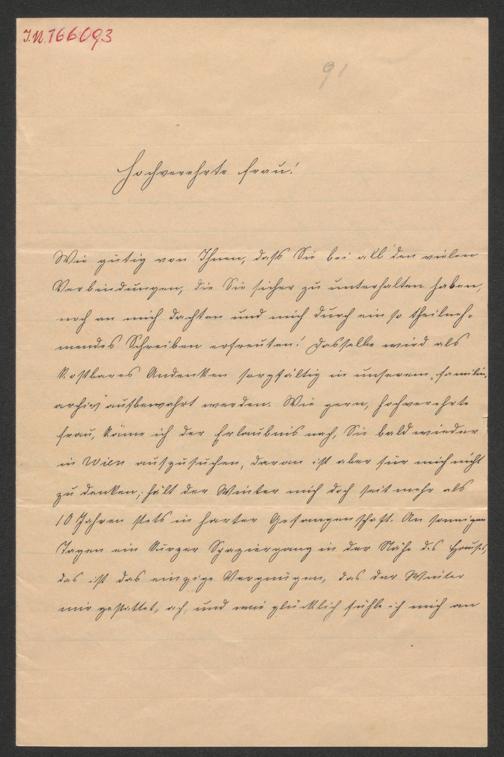 I.N. 166093
91
Hochverehrte Frau!
Wie gütig von Ihnen, daß Sie bei all' den vielen
Verbindungen, die Sie sicher zu unterhalten haben,
noch an mich dachten und mich durch ein so theilneh-
mendes Schreiben erfreuten! Dasselbe wird als
kostbares Andenken sorgfältig in unserem „Familien-
archiv" aufbewahrt werden. Wie gern, hochverehrte
Frau, käme ich der Erlaubnis nach, Sie bald wieder
in Wien aufzusuchen, daran ist aber für mich nicht
zu denken; hält der Winter mich doch seit mehr als
10 Jahren stets in harter Gefangenschaft. An sonnigen
Tagen ein kurzer Spaziergang in der Nähe des Hauses,
das ist das einzige Vergnügen, das der Winter
mir gestattet, ach, und wie glücklich fühle ich mich an